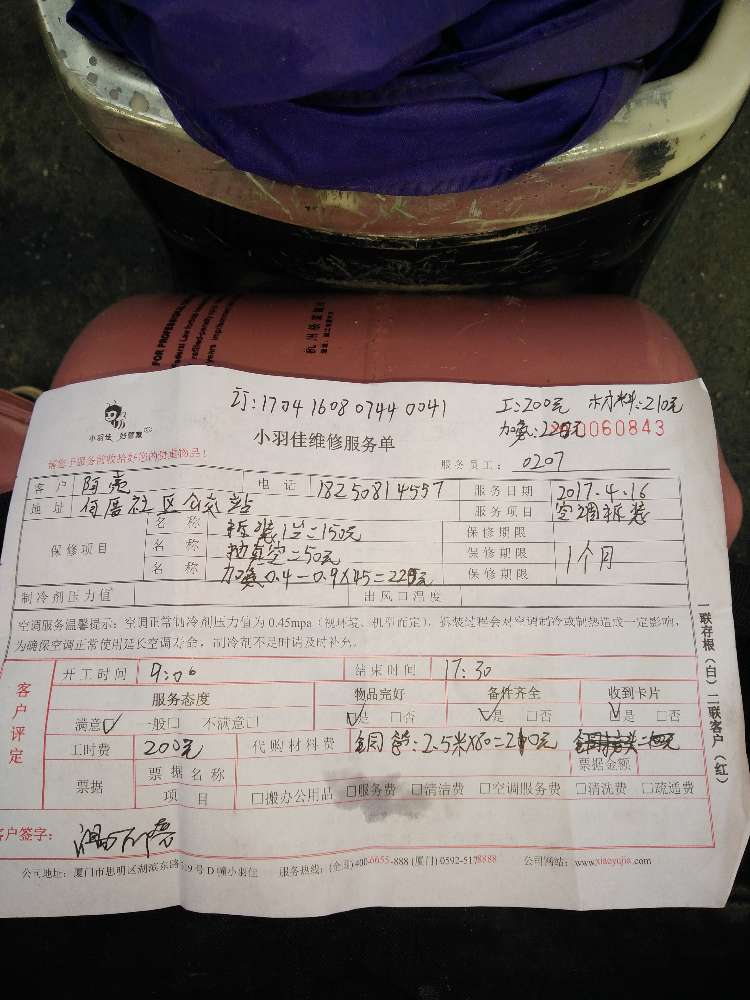 FOR PROFESSIONAL
Federal Law forbids
订:1704 1608 0744 0041
工:200元 材料:210元
小羽佳 好管家
小羽佳维修服务单
加氟:225元
0060843
请您于服务前收拾好您的贵重物品!
服务员工: 0207
客户 阿亮 电话 18250814557 服务日期 2017.4.16
地址 何厝社区公交站 服务项目 空调拆装
保修项目 名称 拆装1台=150元 保修期限
名称 抽真空=50元 保修期限 1个月
名称 加氟0.4-0.9X45=225元 保修期限
制冷剂压力值 出风口温度
空调服务温馨提示:空调正常制冷剂压力值为0.45mpa(视环境、机型而定),拆装过程会对空调制冷或制热造成一定影响,
为确保空调正常使用延长空调寿命,制冷剂不足时请及时补充。
客户评定
开工时间 9:06 结束时间 17:30
服务态度 物品完好 备件齐全 收到卡片
满意☑ 一般□ 不满意□ ☑是 □否 ☑是 □否 ☑是 □否
工时费 200元 代购材料费 铜管:2.5米X80=210元
票据 票据名称 票据金额
项目 □搬办公用品 □服务费 □清洁费 □空调服务费 □清洗费 □疏通费
客户签字:
公司地址:厦门市思明区湖滨东路319号D幢小羽佳 服务热线:(全国)400-6655-888 (厦门)0592-5178888 公司网站:www.xiaoyujia.com
一联存根(白)二联客户(红)